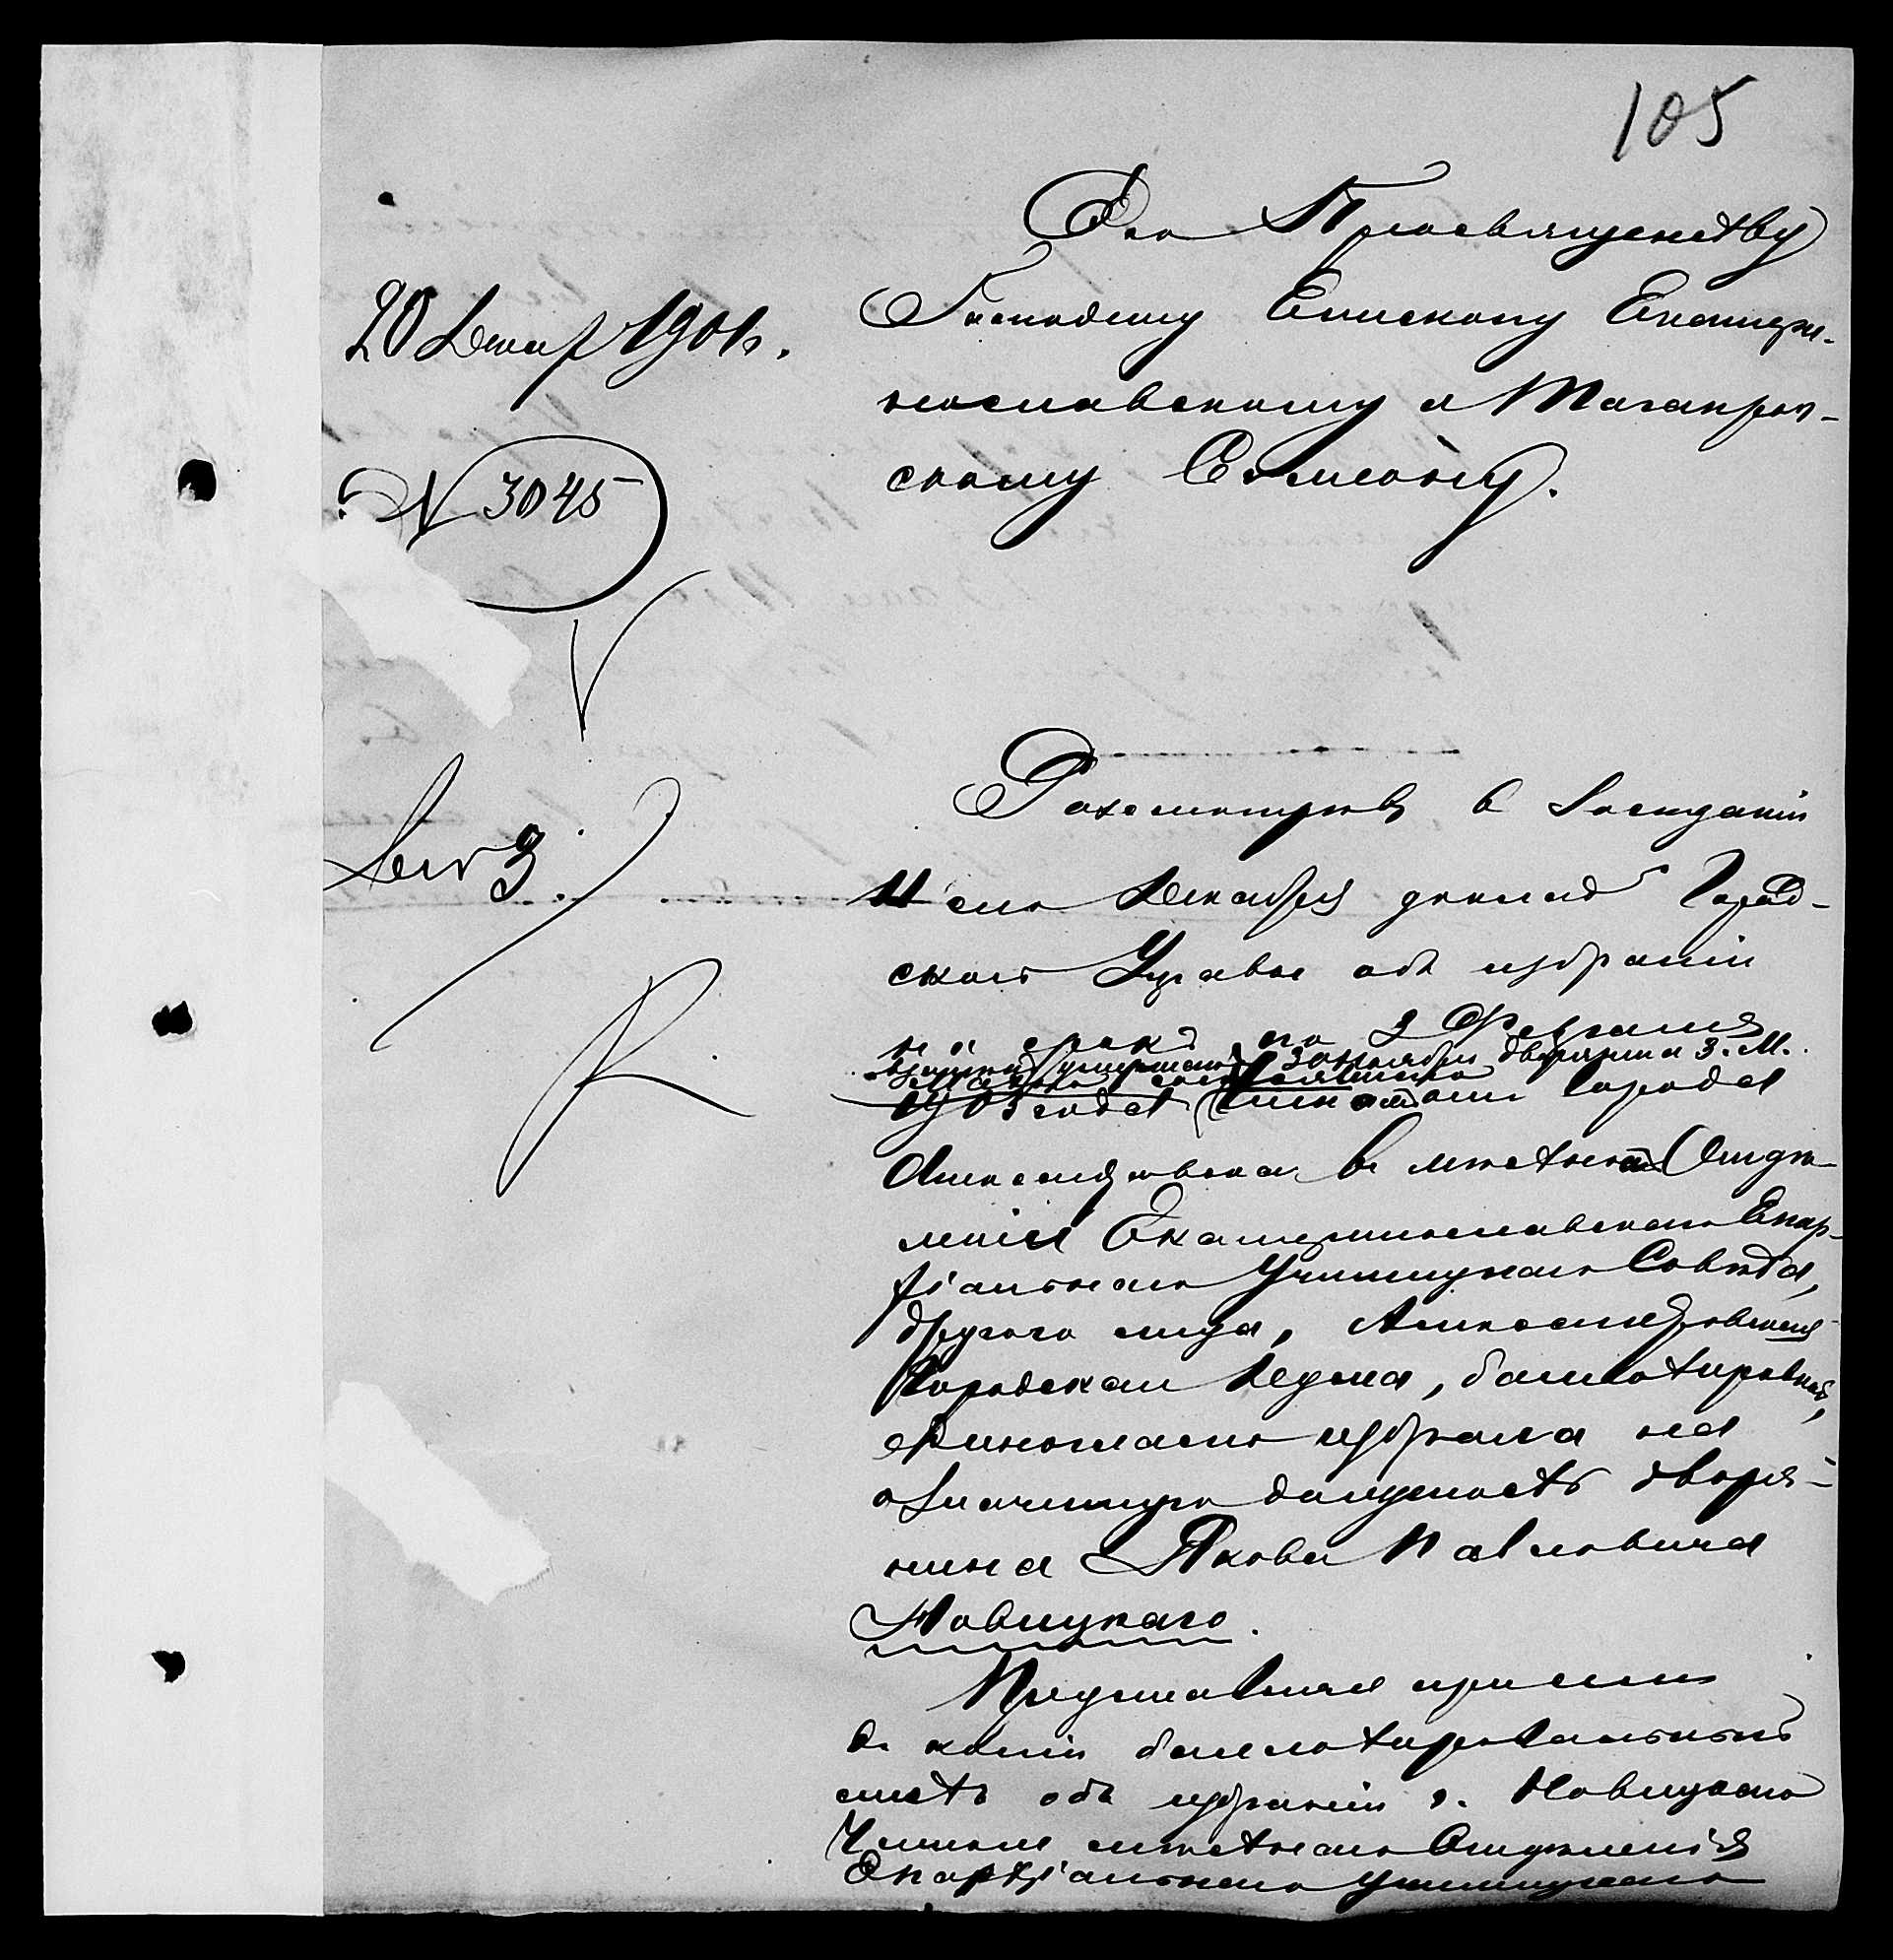 105
Его Преосвященству
Господину Епископу Екатери-
нославскому и Таганрог-
скому Симеону.
20 Декабр 1901 г.
№ 3045
Разсмотревъ въ Заседании
11 сего Декабря докладъ Город-
ской Управы объ избраніи
на срокъ по 2 Февраля
30 Ноября дворянина З. М.
1903 года Членомъ города
Александровска въ местное Отде-
леніе Екатеринославскаго Епар-
хіальнаго Училищнаго Совѣта,
другого лица, Александровская
Городская Дума, баллотировкой,
единогласно избрала на
означенную должность дворя-
нина Якова Павловича
Новицкаго.
Представляя при семъ
въ копіи баллотировальный
листъ объ избраніи г. Новицкаго
Членомъ местнаго Отделенія
Епархіальнаго Училищнаго